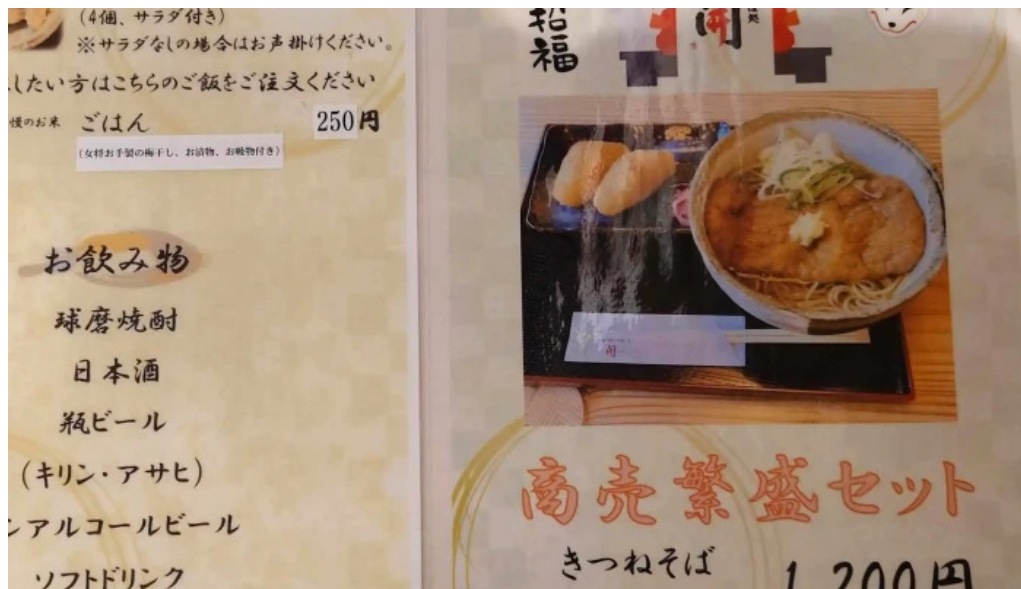 (4個、サラダ付き)
※サラダなしの場合はお声掛けください。
したい方はこちらのご飯をご注文ください
慢のお米 ごはん 250円
(女将お手製の梅干し、お漬物、お吸物付き)
お飲み物
球磨焼酎
日本酒
瓶ビール
(キリン・アサヒ)
ンアルコールビール
ソフトドリンク
招福
開
処
開
商売繁盛セット
きつねそば
1,200円